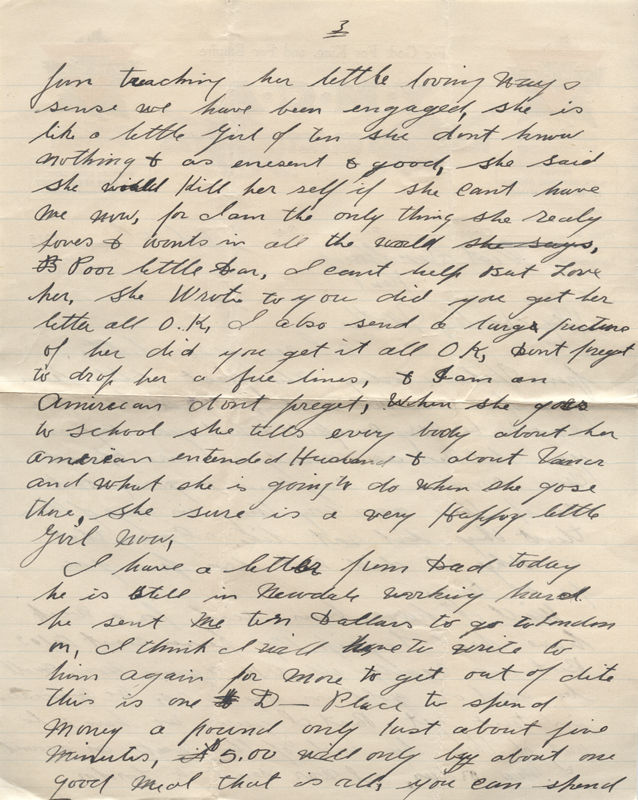 3
fun treaching her little loving ways
sense we have been engaged, she is
like a little Girl of ten she dont know
nothing & as enesent & good, she said
she would Kill her self if she cant have
me now, for I am the only thing she realy
loves & wonts in all the world she says,
Poor little Dear, I cant help But Love
her, she Wrote to you did you get her
letter all O.K, I also send a large picture
of her did you get it all O.K, Dont freget
to drop her a fue lines, & I am an
Amireccan dont freget, When she goes
to school she tells every body about her
american entended Husband & about Vancr
and what she is going to do when she gose
there, she sure is a very Happy little
Girl now,
I have a letter from Dad today
he is still in Newdale working hard
he sent me ten Dollars to go to London
on, I think I will have to write to
him again for more to get out of dite
this is one D— Place to spend
money a pound only last about five
minutes, $5.00 will only by about one
good meal that is all, you can spend